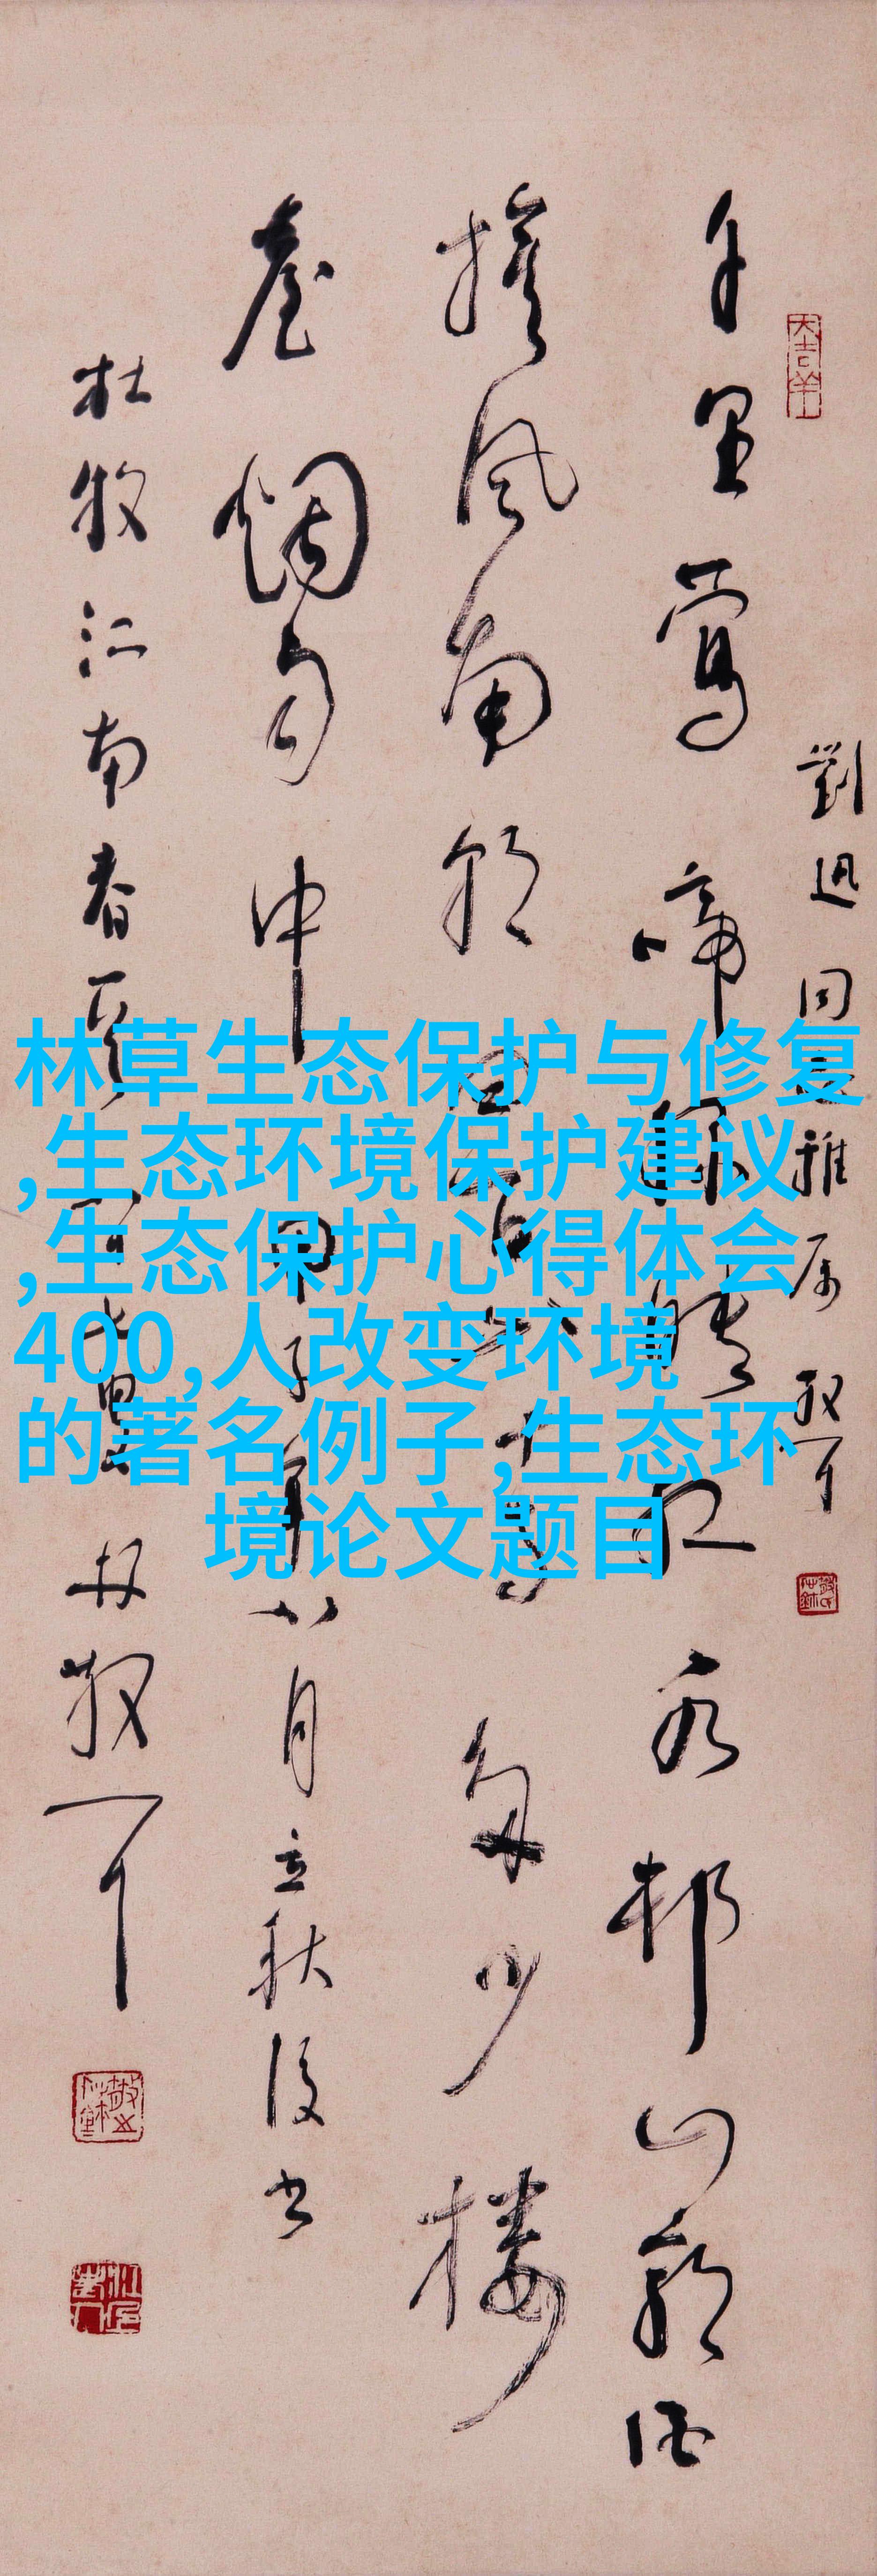 劉迅同志雅属 敬一丁
千里莺啼绿映红水邨山郭酒
旗风南朝四百八十寺多少楼
臺烟雨中 甲子年八月立秋後书
杜牧江南春
林散
林草生态保护与修复
,生态环境保护建议
,生态保护心得体会
400,人改变环境
的著名例子,生态环
境论文题目